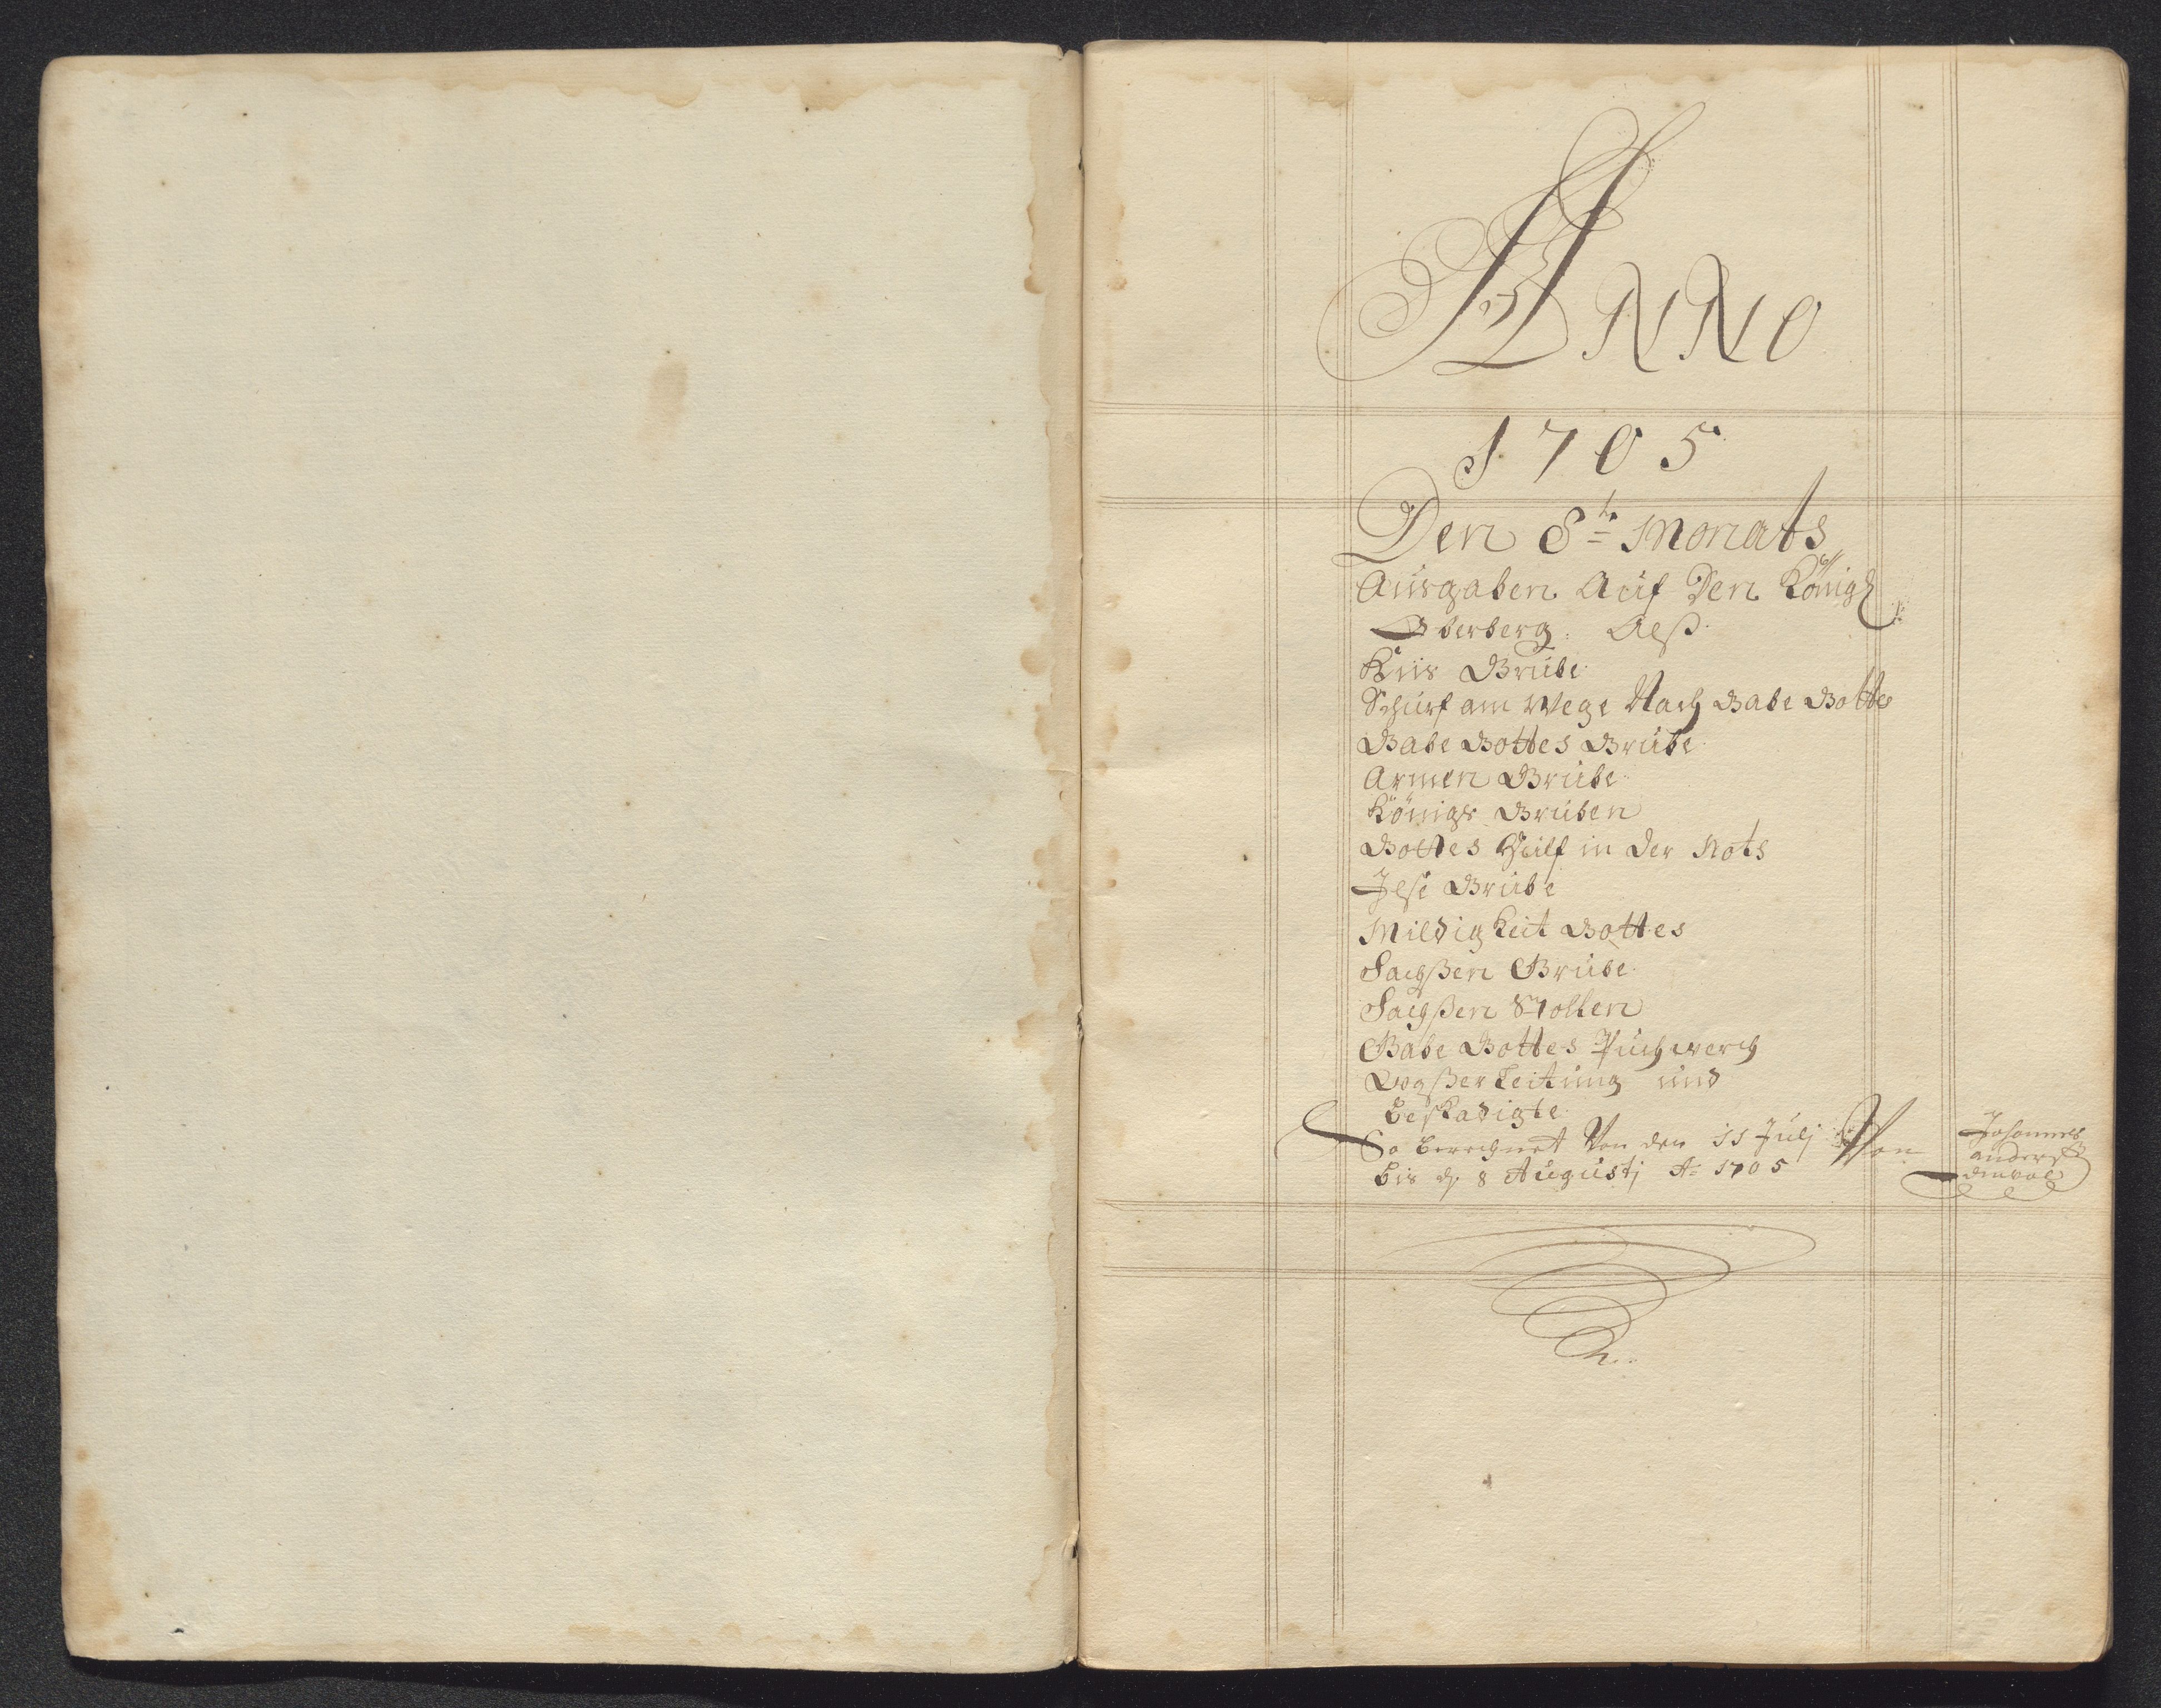 ANNO
1705
Den 8te Monats
Ausgaben Auf Den Königl:
Oberberg: Alß
Kiis Grube
Schurf am Wege Nach Gabe Gottes
Gabe Gottes Grube
Armen Grube
Königs Gruben
Gottes Hülf in der Noth
Jlse Grube
Mildigkeit Gottes
Sachßen Grube
Sachßen Stollen
Gabe Gottes Puchwerch
Waßerleitung und
beskadigte
So berechnet Von den 11 Julj Von Johannes
bis d. 8 Augustj Ao 1705 anders